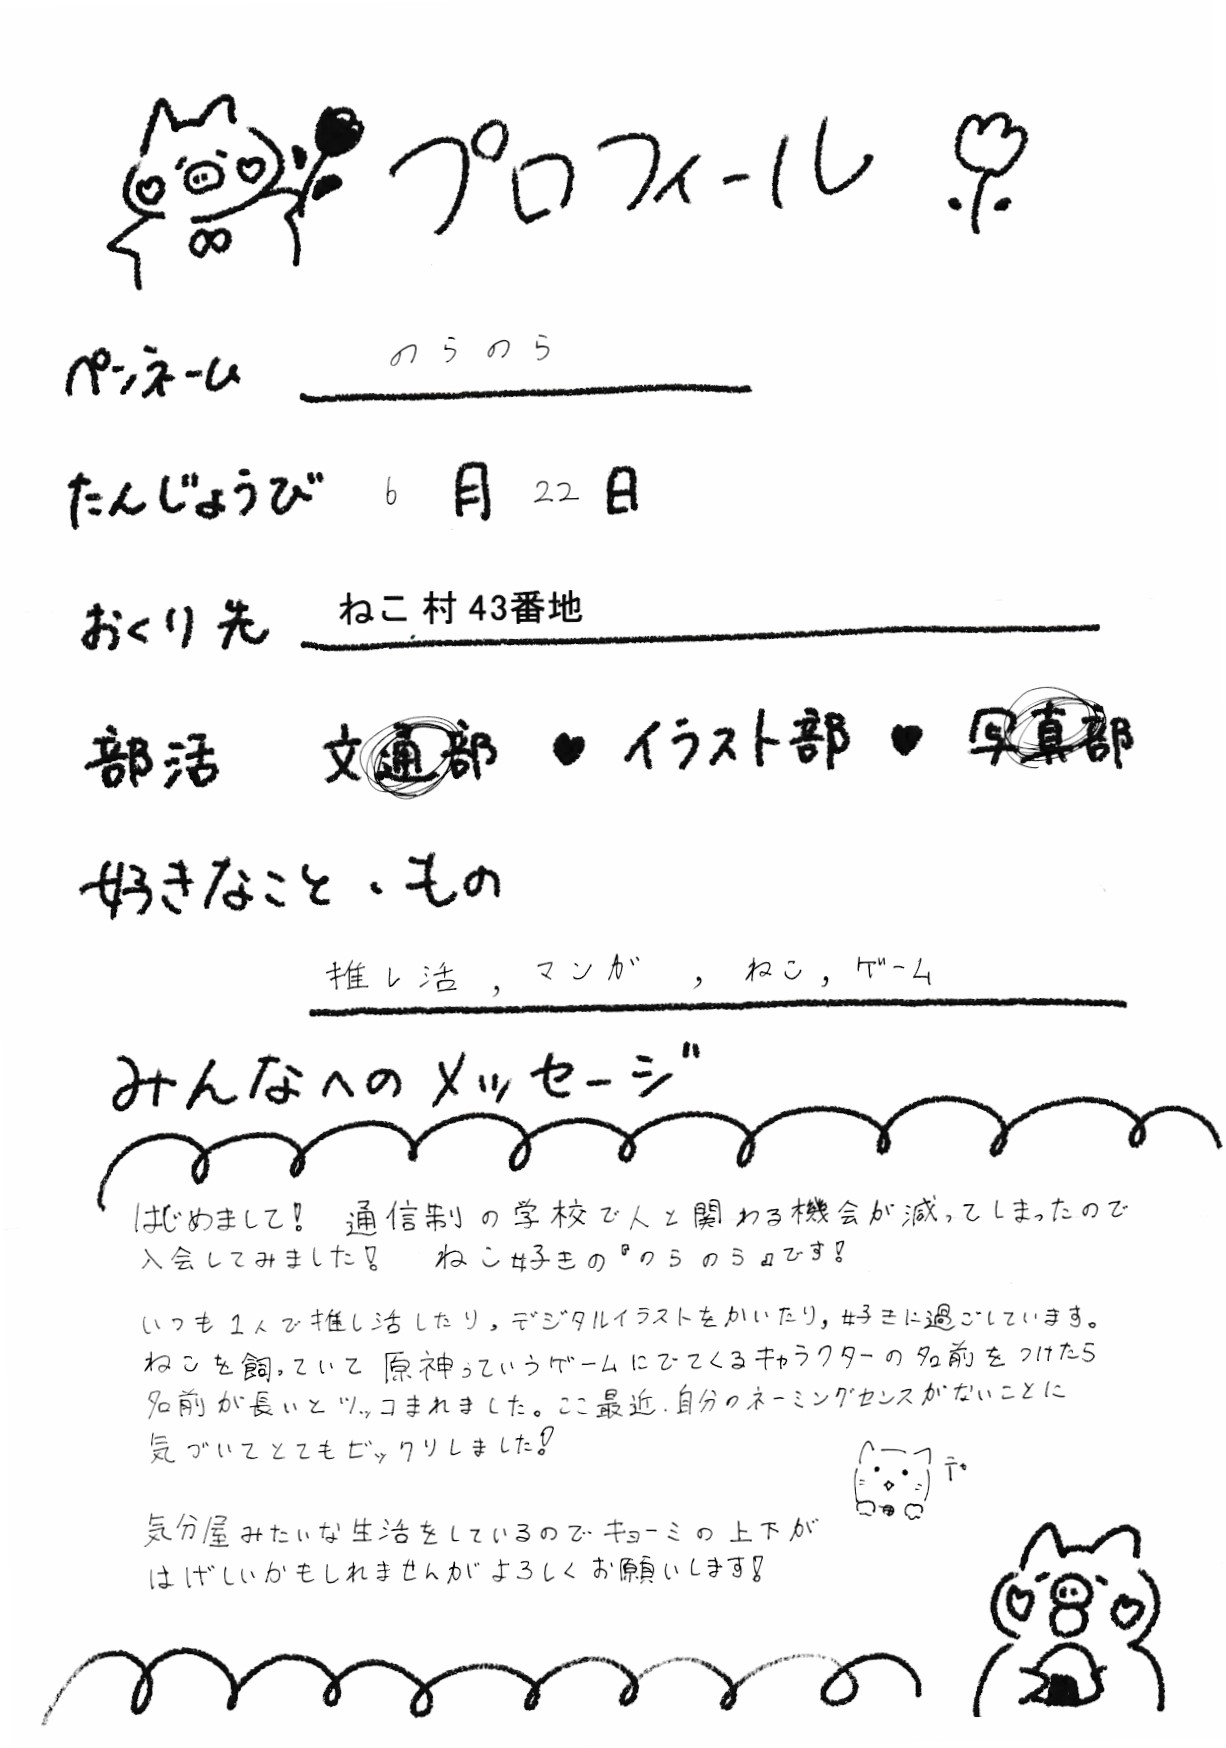 プロフィール
ペンネーム のらのら
たんじょうび 6月22日
おくり先 ねこ村43番地
部活 文通部 ♥ イラスト部 ♥ 写真部
好きなこと・もの
推し活, マンガ, ねこ, ゲーム
みんなへのメッセージ
はじめまして! 通信制の学校で人と関わる機会が減ってしまったので
入会してみました! ねこ好きの『のらのら』です!
いつも1人で推し活したり, デジタルイラストをかいたり, 好きに過ごしています。
ねこを飼っていて原神っていうゲームにでてくるキャラクターの名前をつけたら
名前が長いとツッコまれました。ここ最近、自分のネーミングセンスがないことに
気づいてとてもビックリしました!
気分屋みたいな生活をしているのでキョーミの上下が
はげしいかもしれませんがよろしくお願いします!